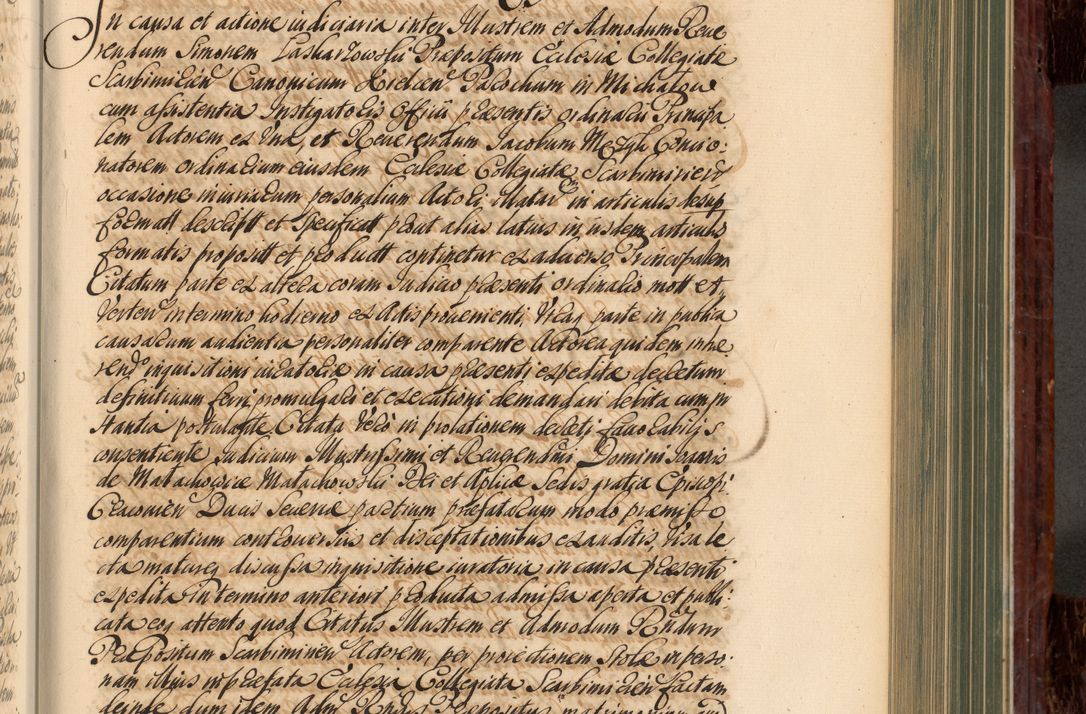 In causa et actione iudiciaria inter Illustrem et Admodum Reve
rendum Simonem Laskarzowski Præpositum Ecclesiæ Collegiatæ
Scarbimirien Canonicum Kielcen Parochum in Michałow
cum assistentia Instigatoris Officii præsentis ordinarii Principa
lem Actorem ex Una, et Reverendum Jacobum Mezyk Concio:
natorem ordinarium eiusdem Ecclesiæ Collegiatæ Scarbimirien
occasione iniuriarum personalium Actori, illatar in articulis desup
formatt descriptt et specificatt prout alias latius in iisdem articulis
formatis propositt et productt continetur ex adverso Principalem
Citatum parte ex altera coram Iudicio præsenti ordinario mott et
Verten in termino hodierno ex Actis provenienti, Utraq parte in publica
causarum audientia personaliter comparente Actorea quidem inhæ
rend inquisitioni iuratoriæ in causa præsenti expeditæ decretum
definitivum ferri promulgari et executioni demandari debita cum in
stantia postulante Citata Vero in prolationem decreti favorabilis
consentiente Iudicium Illustrissimi et Reverendissimi Domini Joannis
de Małachowice Małachowski Dei et Aplicæ Sedis gratia Episcopi
Cracovien Ducis Severiæ partium præfatarum modo præmisso
comparentium controversiis et disceptationibus exauditis, Visa le
cta matureq discussa inquisitione iuratoria in causa præsenti
expedita in termino anteriori producta admissa aperta et publi:
cata eoq attento quod Citatus Illustrem et Admodum Rndum
Præpositum Scarbimirien Actorem, per proiectionem Stolæ in perso:
nam illius in præfata Ecclesia Collegiata Scarbimirien factam
deinde dum idem Adm Rndus Præpositus matrimonium